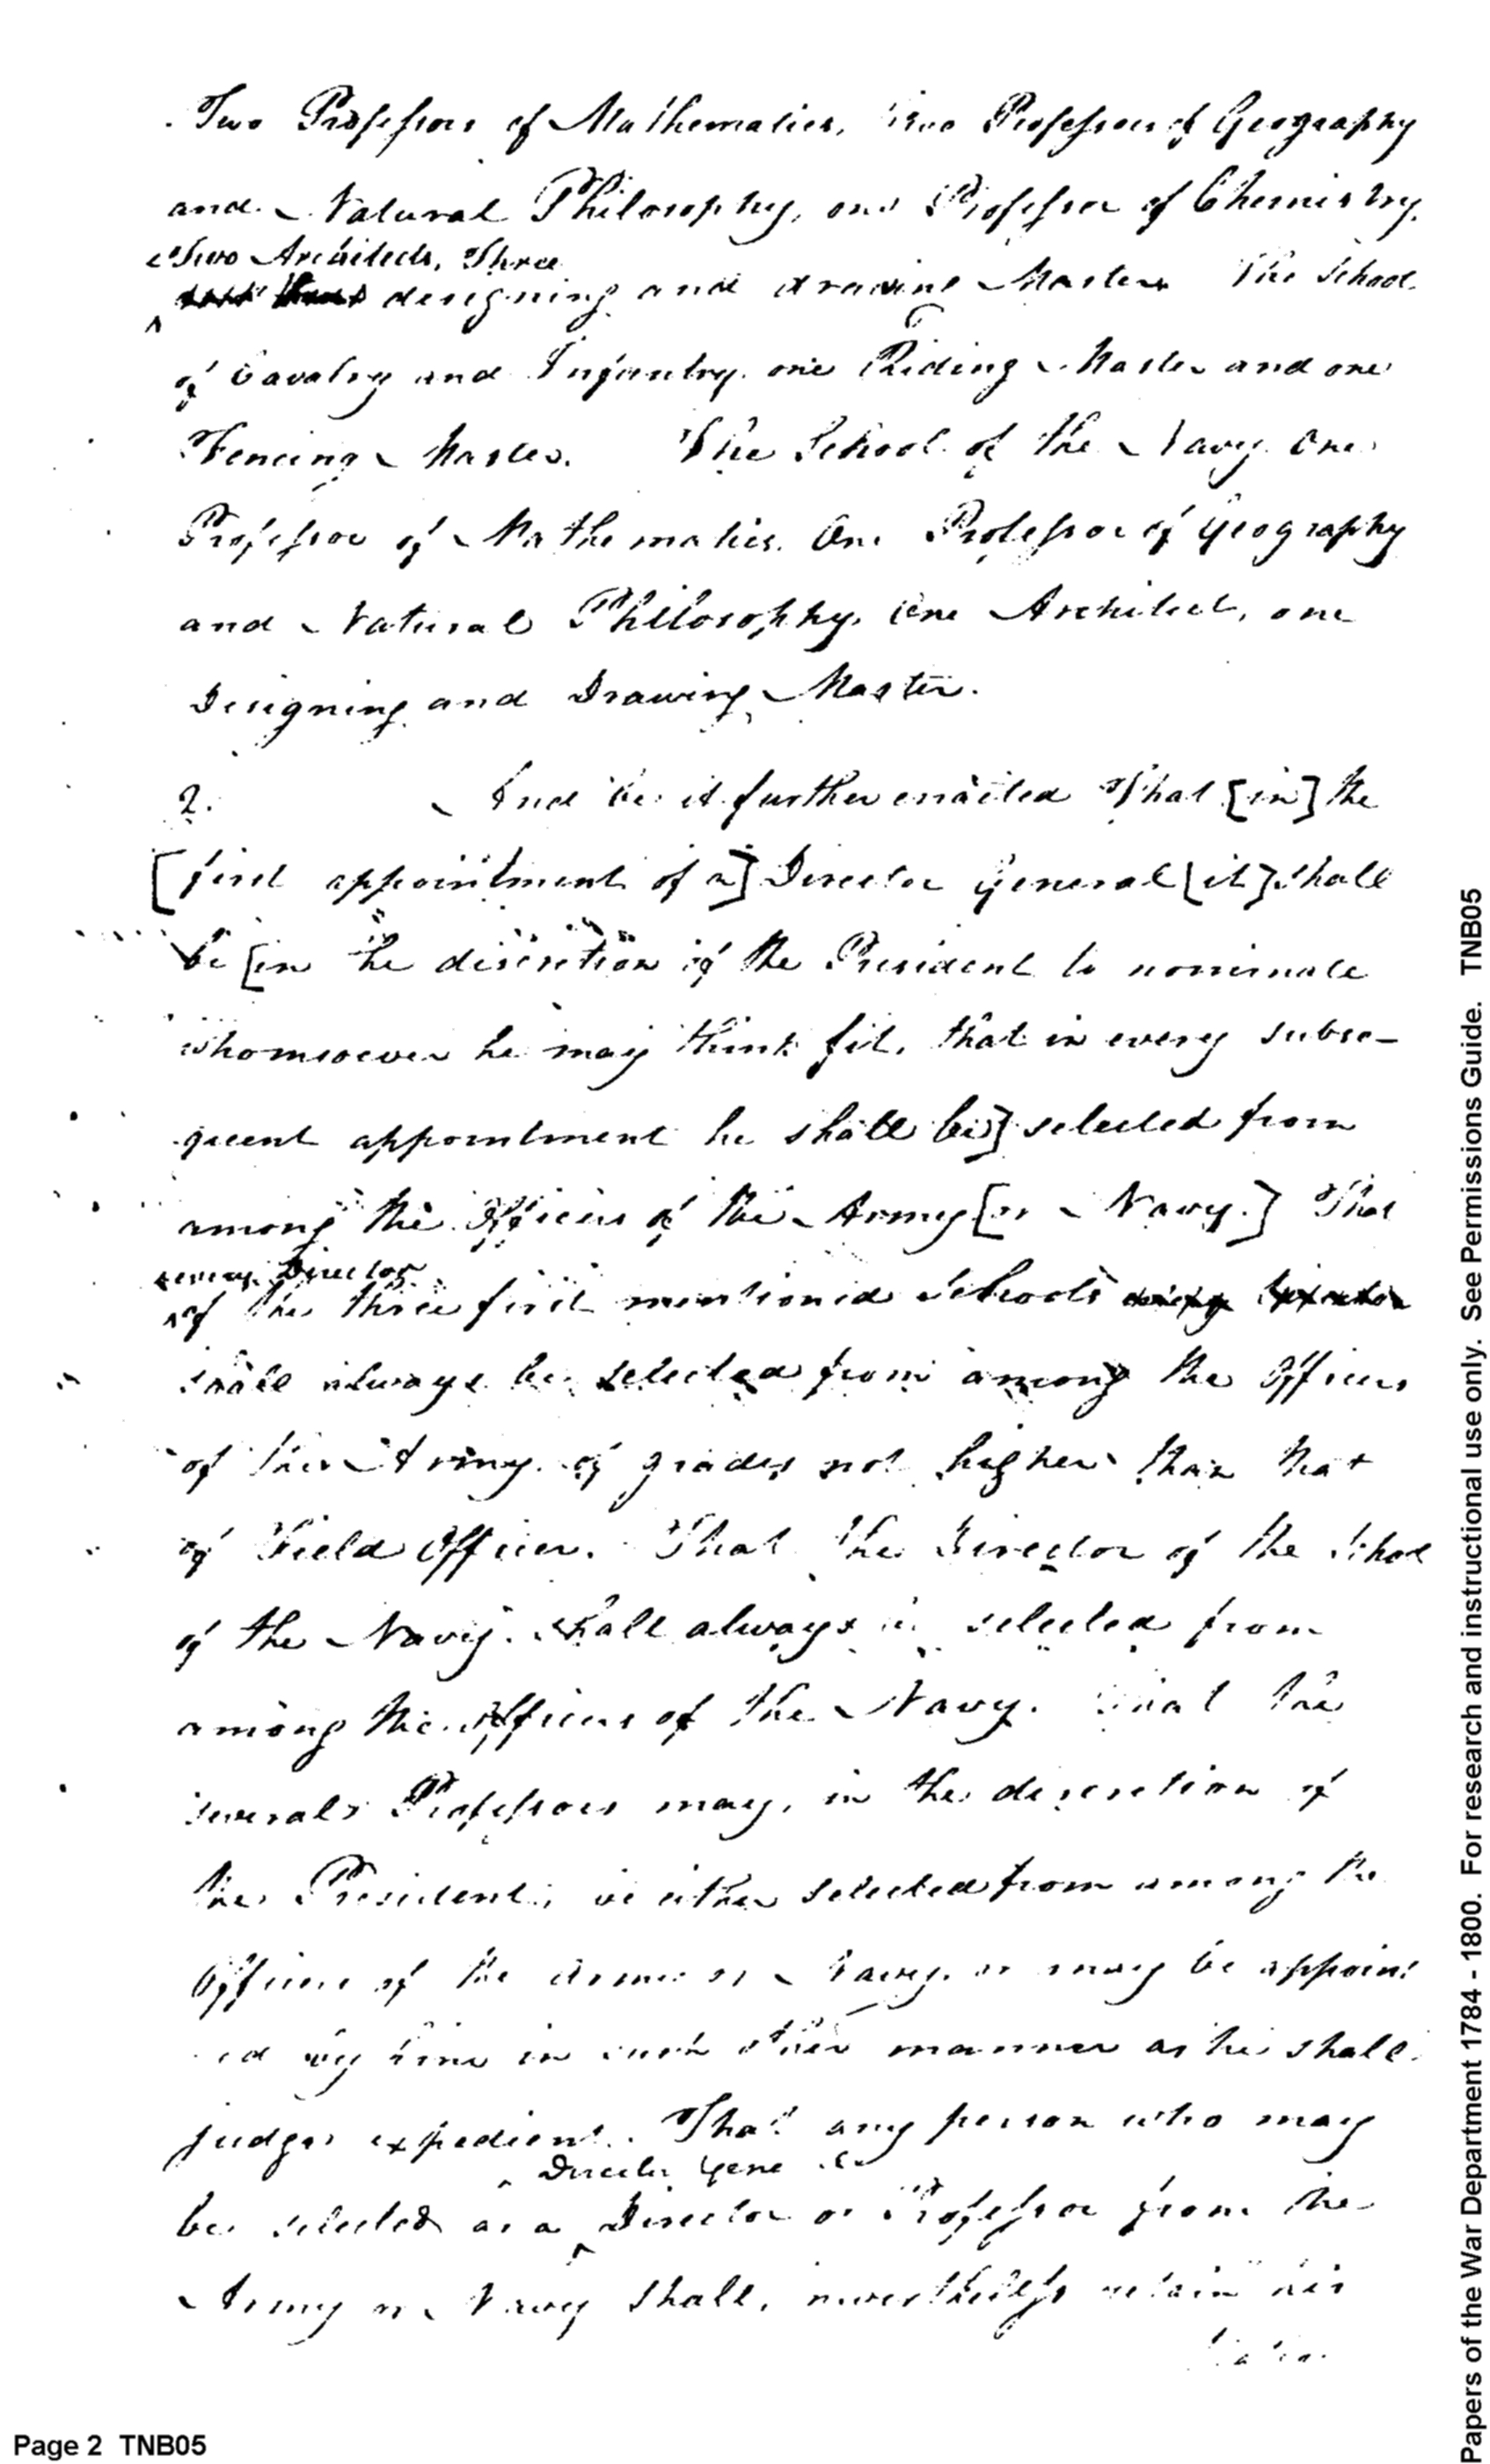 Two Professors of Mathematics, Two Professors of Geography
and Natural Philosophy, one Professor of Chemistry,
Two Architects, Three
designing and drawing Masters The School
of Cavalry and Infantry one Riding Master and one
Fencing Master. The School of the Navy One
Professor of Mathematics. One Professor of Geography
and Natural Philosophy, One Architect, one
Designing and Drawing Master.
2. And be it further enacted That [in] the
[first appointment of a] Director General [it] shall
be [in the discretion of the President to nominate
whomsoever he may think fit, that in every subse-
quent appointment he shall be] selected from
among the Officers of the Army [or Navy.] That
every Director
of the three first mentioned Schools
shall always be selected from among the Officers
of the Army of grades not higher than that
of Field Officer. That the Director of the School
of the Navy shall always be selected from
among the Officers of the Navy. That the
several Professors may, in the discretion of
the President, be either selected from among the
Officers of the Army or Navy, or may be appoint
ed by him in such other manner as he shall
judge expedient. That any person who may
Director General
be selected as a Director or Professor from the
Army or Navy shall, nevertheless retain his
Page 2 TNB05
Papers of the War Department 1784 - 1800. For research and instructional use only. See Permissions Guide. TNB05